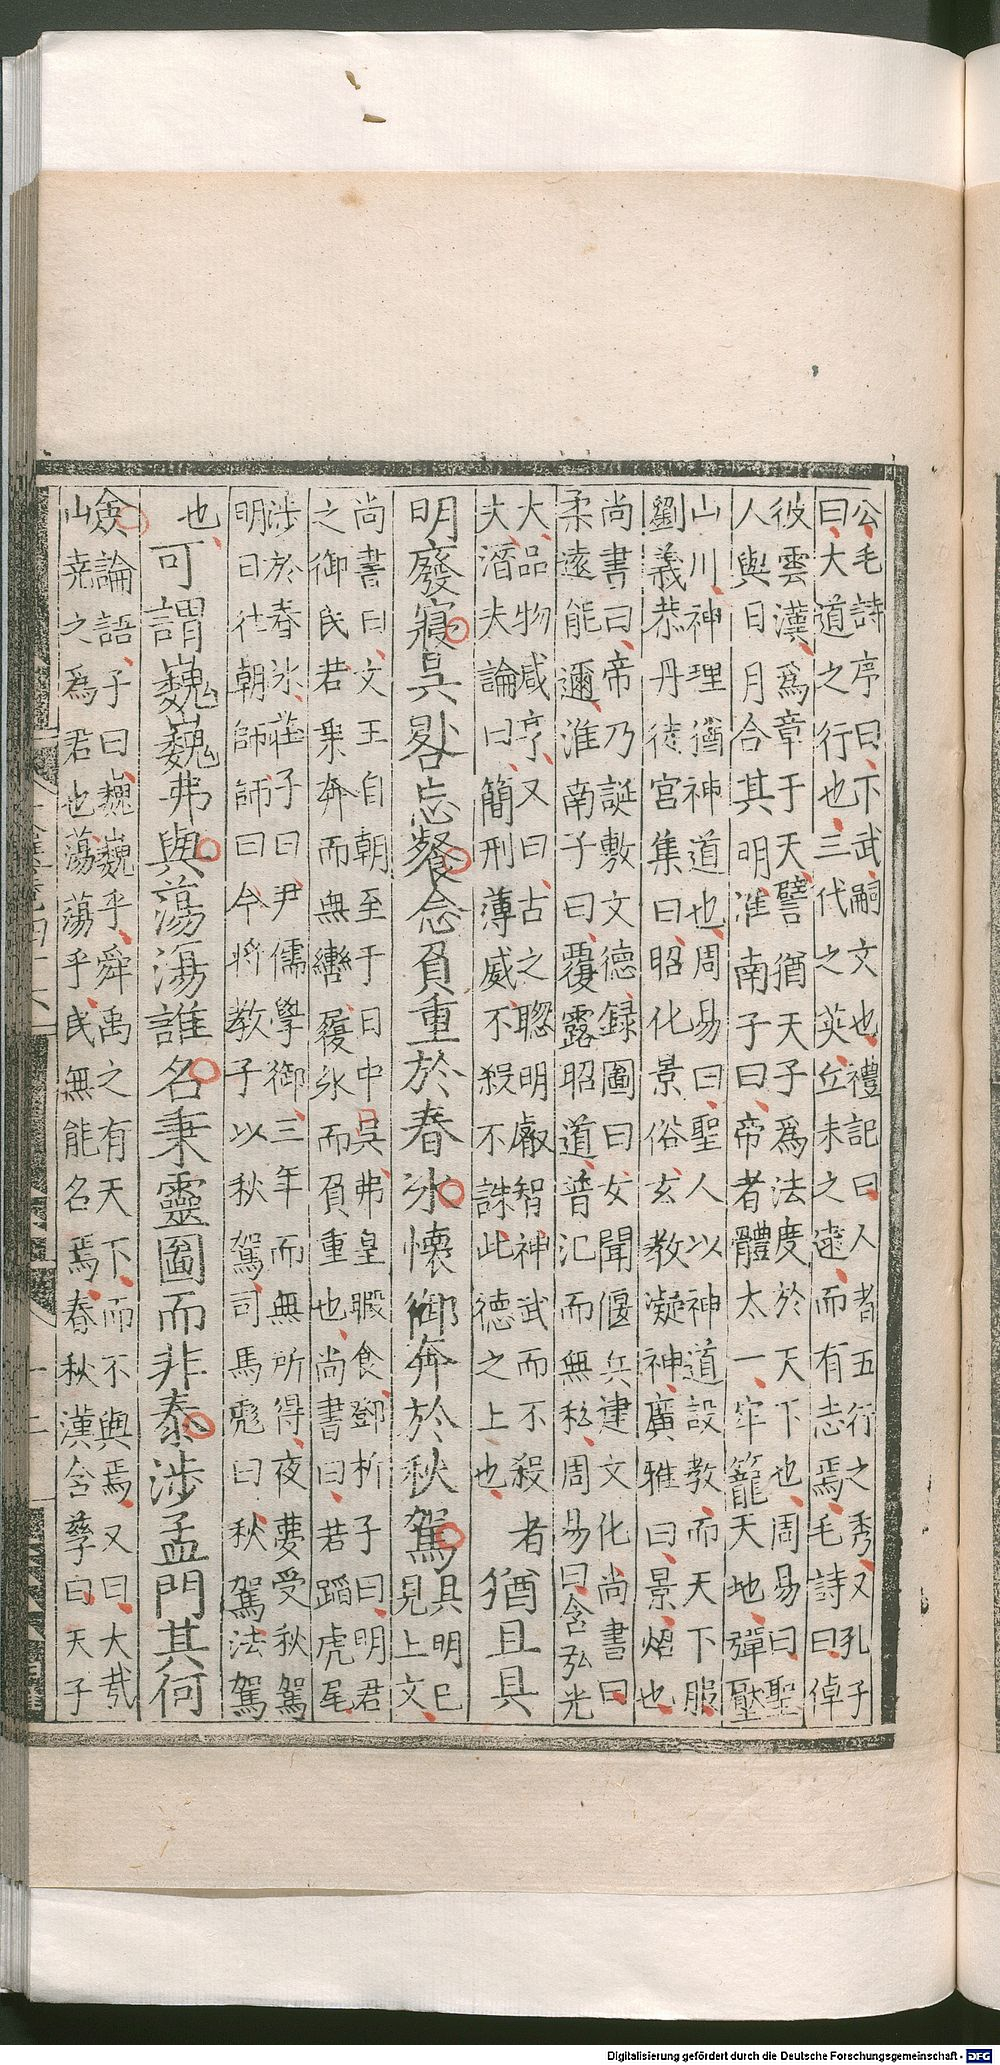 公毛詩序曰下武嗣文也禮記曰人者五行之秀又孔子
曰大道之行也三代之英丘未之逮而有志焉毛詩曰倬
彼雲漢爲章于天譬猶天子爲法度於天下也周易曰聖
人與日月合其明淮南子曰帝者體太一牢籠天地彈壓
山川神理猶神道也周易曰聖人以神道設教而天下服
劉義恭丹徒宮集曰昭化景俗玄教凝神廣雅曰景炤也
尚書曰帝乃誕敷文德録圖曰女聞偃兵建文化尚書曰
柔遠能邇淮南子曰覆露昭道普汜而無私周易曰含弘光
大品物咸亨又曰古之聦明叡智神武而不殺者
夫潛夫論曰簡刑薄威不殺不誅此德之上也
猶且具
明廢寢昃晷忘餐念負重於春氷懷御奔於秋駕
具明已
見上文
尚書曰文王自朝至于日中昃弗皇暇食鄧析子曰明君
之御民若乗奔而無轡履氷而負重也尚書曰若蹈虎尾
涉於春氷莊子曰尹儒學御三年而無所得夜夢受秋駕
明日往朝師師曰今將教子以秋駕司馬彪曰秋駕法駕
也
可謂巍巍弗與蕩蕩誰名秉靈圖而非泰涉孟門其何
嶮論語子曰巍巍乎舜禹之有天下而不與焉又曰大哉
堯之爲君也蕩蕩乎民無能名焉春秋漢含孳曰天子
Digitalisierung gefördert durch die Deutsche Forschungsgemeinschaft - DFG